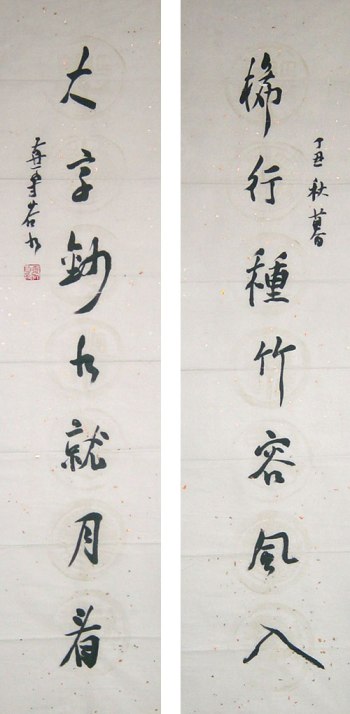 稀行種竹容風入
丁丑秋暮
大字鈔方就月看